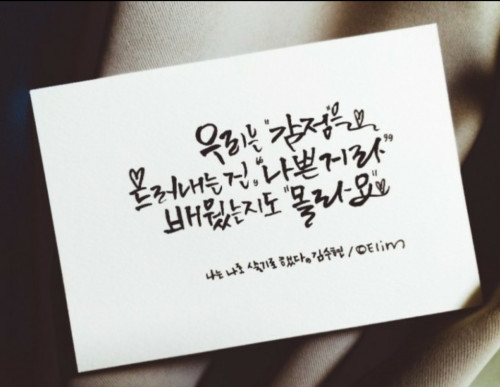 우리는 "감정"은요
드러내는 건, "나쁜거라"
배웠는지도 "몰라요"
나는 나로 살기로 했다. 김수현 / ©Elim